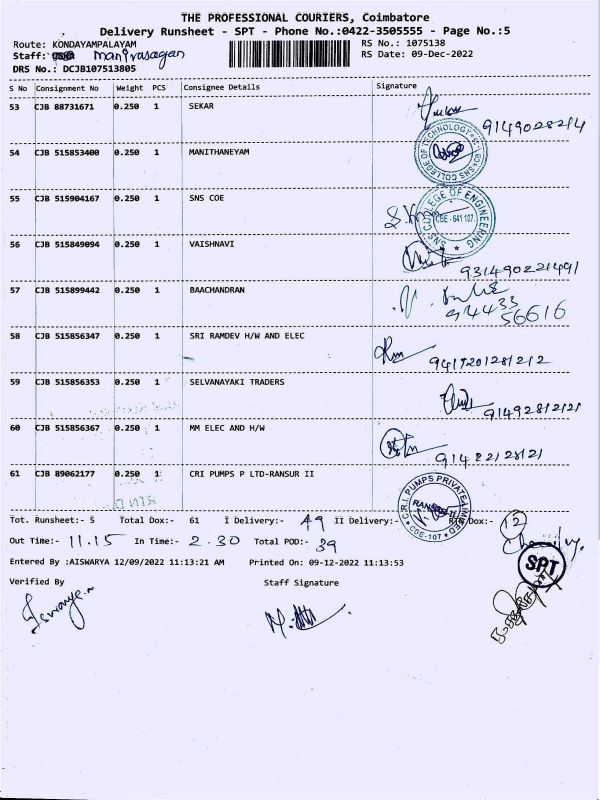 THE PROFESSIONAL COURIERS, Coimbatore
Delivery Runsheet - SPT - Phone No.:0422-3505555 - Page No.:5
Route: KONDAYAMPALAYAM RS No.: 1075138
Staff: manivasagan RS Date: 09-Dec-2022
DRS No.: DCJB107513805
S No Consignment No Weight PCS Consignee Details Signature
53 CJB 88731671 0.250 1 SEKAR
9149028214
54 CJB 515853400 0.250 1 MANITHANEYAM
SNS COLLEGE OF TECHNOLOGY
55 CJB 515904167 0.250 1 SNS COE
SNS COLLEGE OF ENGINEERING
CBE - 641 107.
56 CJB 515849094 0.250 1 VAISHNAVI
931490221491
57 CJB 515899442 0.250 1 BAACHANDRAN
94433
56616
58 CJB 515856347 0.250 1 SRI RAMDEV H/W AND ELEC
59 CJB 515856353 0.250 1 SELVANAYAKI TRADERS
60 CJB 515856367 0.250 1 MM ELEC AND H/W
61 CJB 89062177 0.250 1 CRI PUMPS P LTD-RANSUR II
C.R.I. PUMPS PRIVATE LIMITED
CBE-107
Tot. Runsheet:- 5 Total Dox:- 61 I Delivery:- 49 II Delivery:- Dox:- 12
Out Time:- 11.15 In Time:- 2.30 Total POD:- 39
SPT
Entered By :AISWARYA 12/09/2022 11:13:21 AM Printed On: 09-12-2022 11:13:53
Verified By Staff Signature